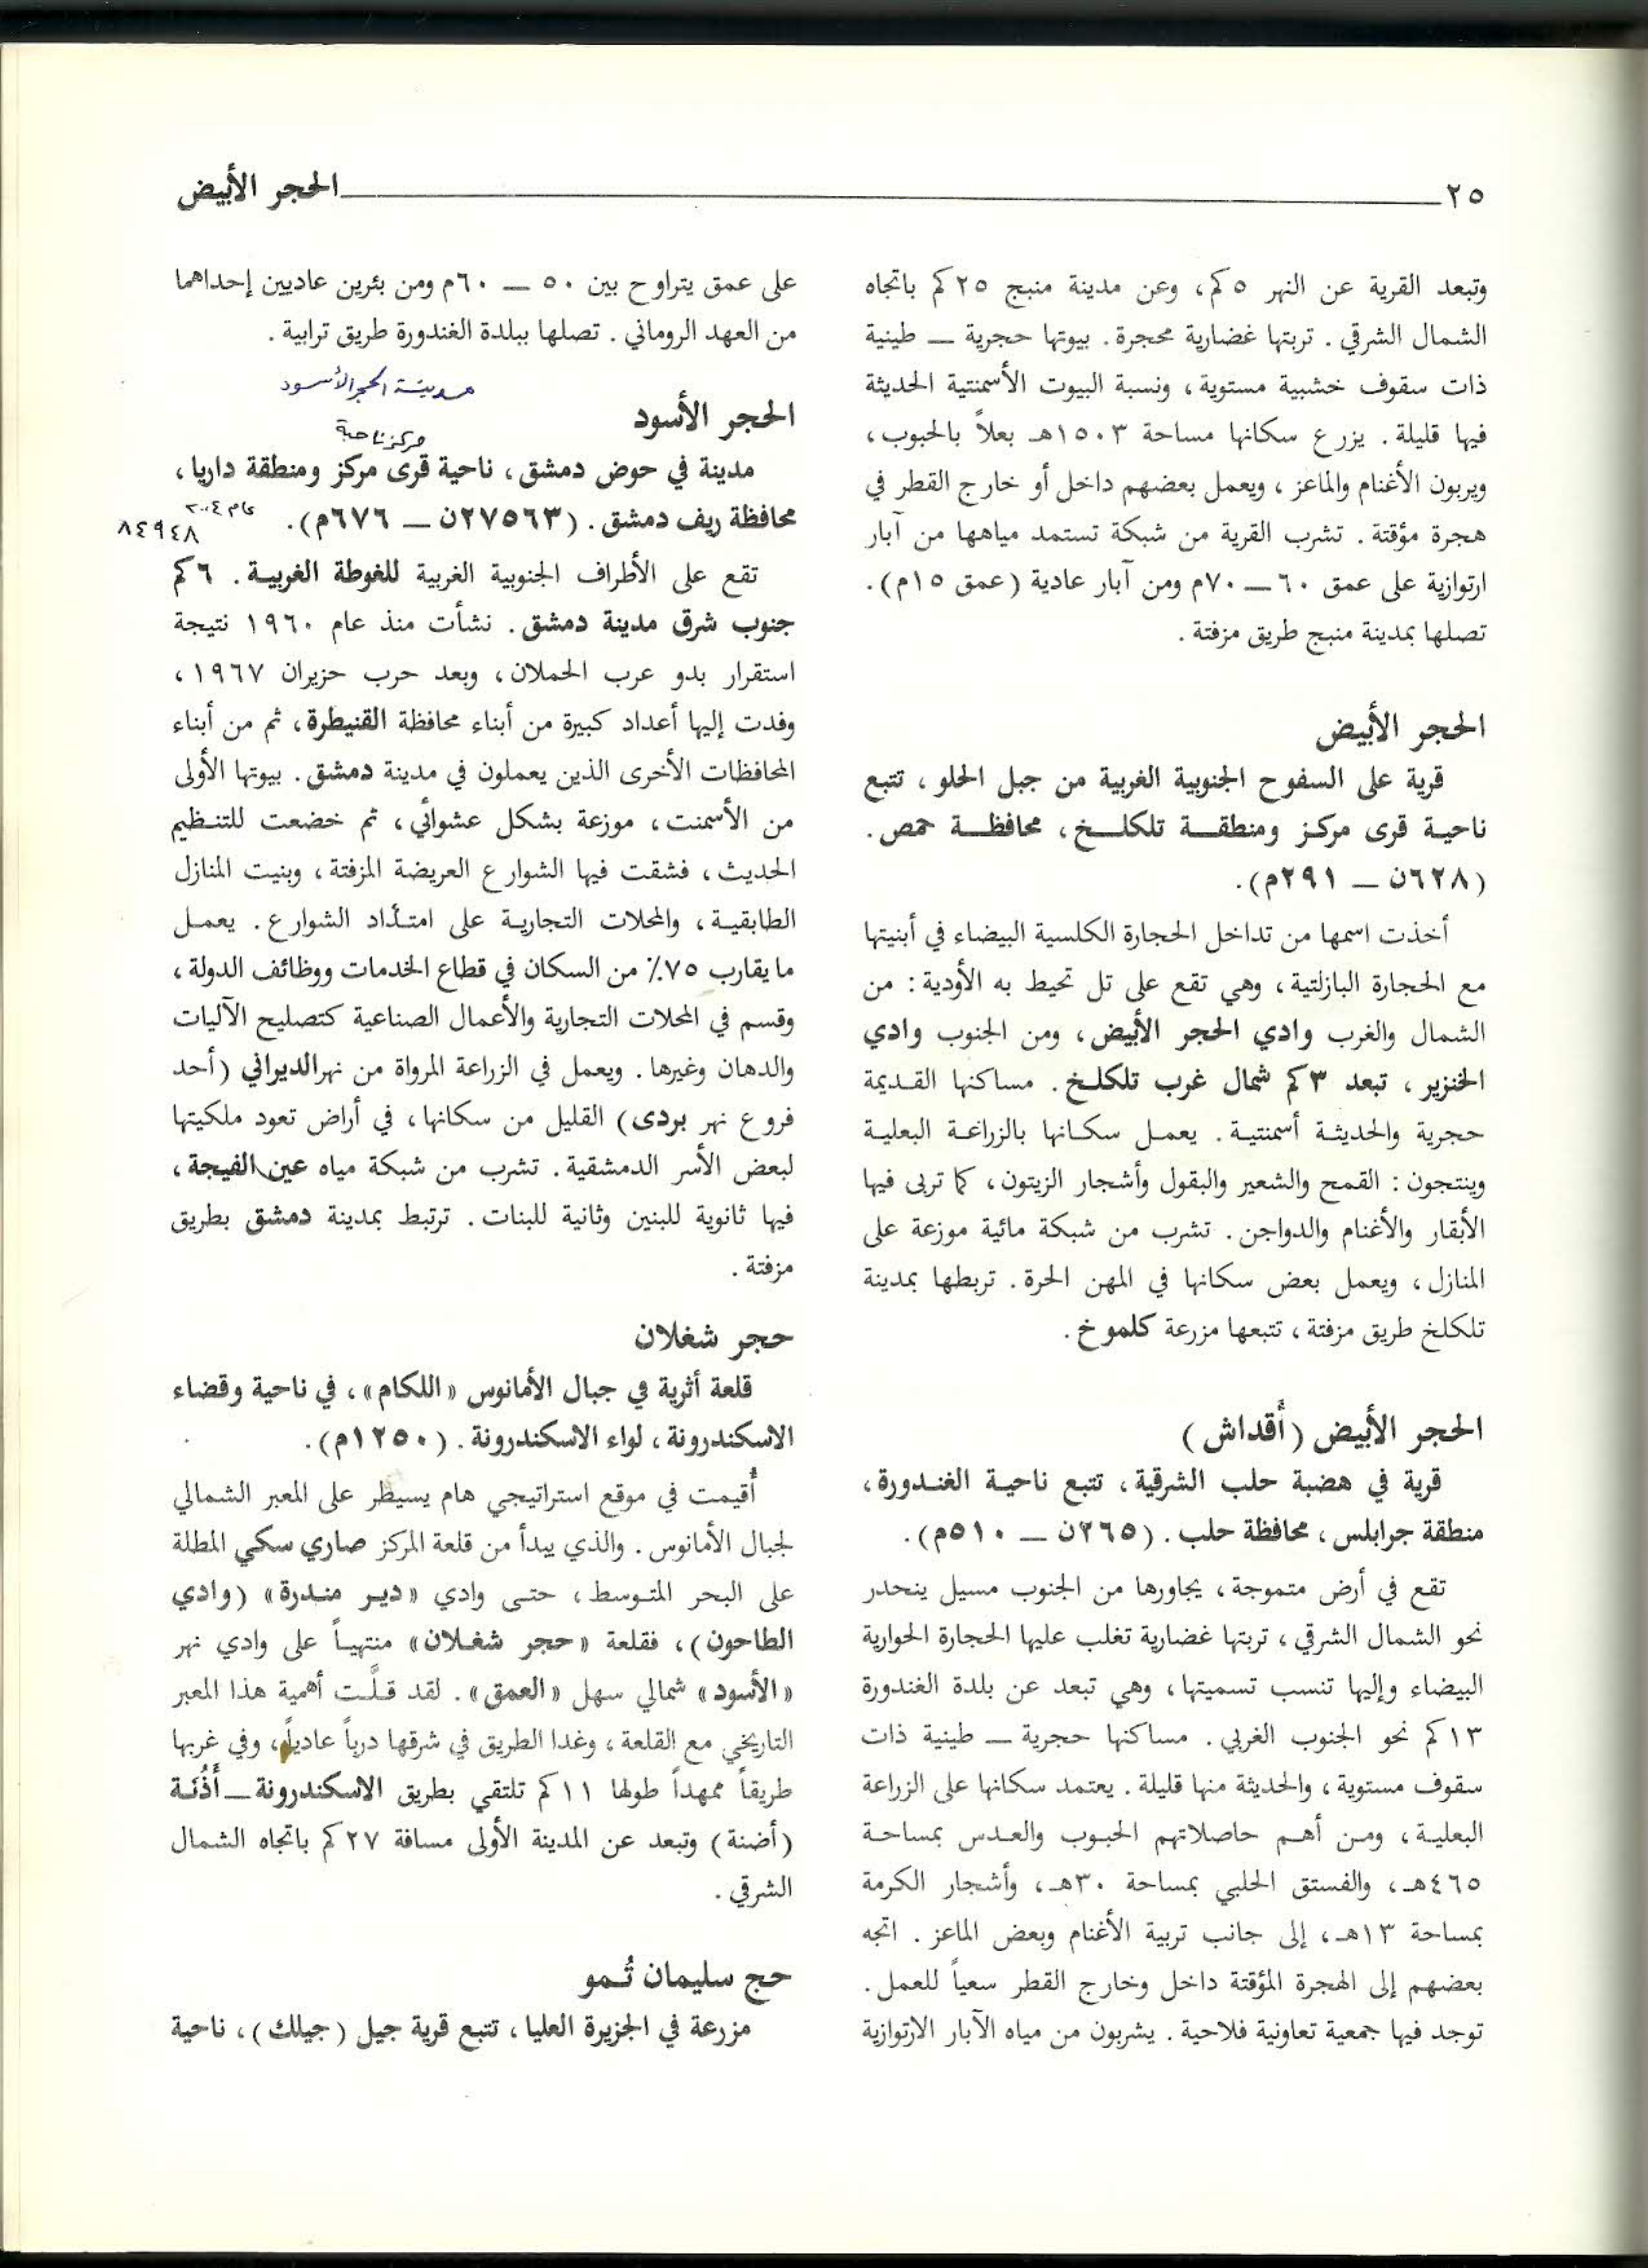 ٢٥
الحجر الأبيض
وتبعد القرية عن النهر ٥كم، وعن مدينة منبج ٢٥كم باتجاه
الشمال الشرقي. تربتها غضارية محجرة. بيوتها حجرية — طينية
ذات سقوف خشبية مستوية، ونسبة البيوت الأسمنتية الحديثة
فيها قليلة. يزرع سكانها مساحة ١٥٠٣هـ بعلاً بالحبوب،
ويربون الأغنام والماعز، ويعمل بعضهم داخل أو خارج القطر في
هجرة مؤقتة. تشرب القرية من شبكة تستمد مياهها من آبار
ارتوازية على عمق ٦٠—٧٠م ومن آبار عادية (عمق ١٥م).
تصلها بمدينة منبج طريق مزفتة.
الحجر الأبيض
قرية على السفوح الجنوبية الغربية من جبل الحلو، تتبع
ناحية قرى مركز ومنطقة تلكلخ، محافظة حمص.
(٦٢٨ن — ٢٩١م).
أخذت اسمها من تداخل الحجارة الكلسية البيضاء في أبنيتها
مع الحجارة البازلتية، وهي تقع على تل تحيط به الأودية: من
الشمال والغرب وادي الحجر الأبيض، ومن الجنوب وادي
الخنزير، تبعد ٣كم شمال غرب تلكلخ. مساكنها القديمة
حجرية والحديثة أسمنتية. يعمل سكانها بالزراعة البعلية
وينتجون: القمح والشعير والبقول وأشجار الزيتون، كما تربى فيها
الأبقار والأغنام والدواجن. تشرب من شبكة مائية موزعة على
المنازل، ويعمل بعض سكانها في المهن الحرة. تربطها بمدينة
تلكلخ طريق مزفتة، تتبعها مزرعة كلموخ.
الحجر الأبيض (أَقداش)
قرية في هضبة حلب الشرقية، تتبع ناحية الغندورة،
منطقة جرابلس، محافظة حلب. (٢٦٥ن — ٥١٠م).
تقع في أرض متموجة، يجاورها من الجنوب مسيل ينحدر
نحو الشمال الشرقي، تربتها غضارية تغلب عليها الحجارة الحوارية
البيضاء وإليها تنسب تسميتها، وهي تبعد عن بلدة الغندورة
١٣كم نحو الجنوب الغربي. مساكنها حجرية — طينية ذات
سقوف مستوية، والحديثة منها قليلة. يعتمد سكانها على الزراعة
البعلية، ومن أهم حاصلاتهم الحبوب والعدس بمساحة
٤٦٥هـ، والفستق الحلبي بمساحة ٣٠هـ، وأشجار الكرمة
بمساحة ١٣هـ، إلى جانب تربية الأغنام وبعض الماعز. اتجه
بعضهم إلى الهجرة المؤقتة داخل وخارج القطر سعياً للعمل.
توجد فيها جمعية تعاونية فلاحية. يشربون من مياه الآبار الارتوازية
على عمق يتراوح بين ٥٠ — ٦٠م ومن بئرين عاديين إحداهما
من العهد الروماني. تصلها ببلدة الغندورة طريق ترابية.
مدينة الحجر الأسود
الحجر الأسود
مركز ناحية
مدينة في حوض دمشق، ناحية قرى مركز ومنطقة داريا،
محافظة ريف دمشق. (٢٧٥٦٣ن — ٦٧٦م).
عام ٢٠٠٤
٨٤٩٤٨
تقع على الأطراف الجنوبية الغربية للغوطة الغربية. ٦كم
جنوب شرق مدينة دمشق. نشأت منذ عام ١٩٦٠ نتيجة
استقرار بدو عرب الحملان، وبعد حرب حزيران ١٩٦٧،
وفدت إليها أعداد كبيرة من أبناء محافظة القنيطرة، ثم من أبناء
المحافظات الأخرى الذين يعملون في مدينة دمشق. بيوتها الأولى
من الأسمنت، موزعة بشكل عشوائي، ثم خضعت للتنظيم
الحديث، فشقت فيها الشوارع العريضة المزفتة، وبنيت المنازل
الطابقية، والمحلات التجارية على امتداد الشوارع. يعمل
ما يقارب ٧٥٪ من السكان في قطاع الخدمات ووظائف الدولة،
وقسم في المحلات التجارية والأعمال الصناعية كتصليح الآليات
والدهان وغيرها. ويعمل في الزراعة المرواة من نهر الديراني (أحد
فروع نهر بردى) القليل من سكانها، في أراض تعود ملكيتها
لبعض الأسر الدمشقية. تشرب من شبكة مياه عين الفيجة،
فيها ثانوية للبنين وثانية للبنات. ترتبط بمدينة دمشق بطريق
مزفتة.
حجر شغلان
قلعة أثرية في جبال الأمانوس «اللكام»، في ناحية وقضاء
الاسكندرونة، لواء الاسكندرونة. (١٢٥٠م).
أُقيمت في موقع استراتيجي هام يسيطر على المعبر الشمالي
لجبال الأمانوس. والذي يبدأ من قلعة المركز صاري سكي المطلة
على البحر المتوسط، حتى وادي «دير مندرة» (وادي
الطاحون)، فقلعة «حجر شغلان» منتهياً على وادي نهر
«الأسود» شمالي سهل «العمق». لقد قلَّت أهمية هذا المعبر
التاريخي مع القلعة، وغدا الطريق في شرقها درباً عادياً، وفي غربها
طريقاً ممهداً طولها ١١كم تلتقي بطريق الاسكندرونة — أَذُنَة
(أضنة) وتبعد عن المدينة الأولى مسافة ٢٧كم باتجاه الشمال
الشرقي.
حج سليمان تُمو
مزرعة في الجزيرة العليا، تتبع قرية جيل (جيلك)، ناحية